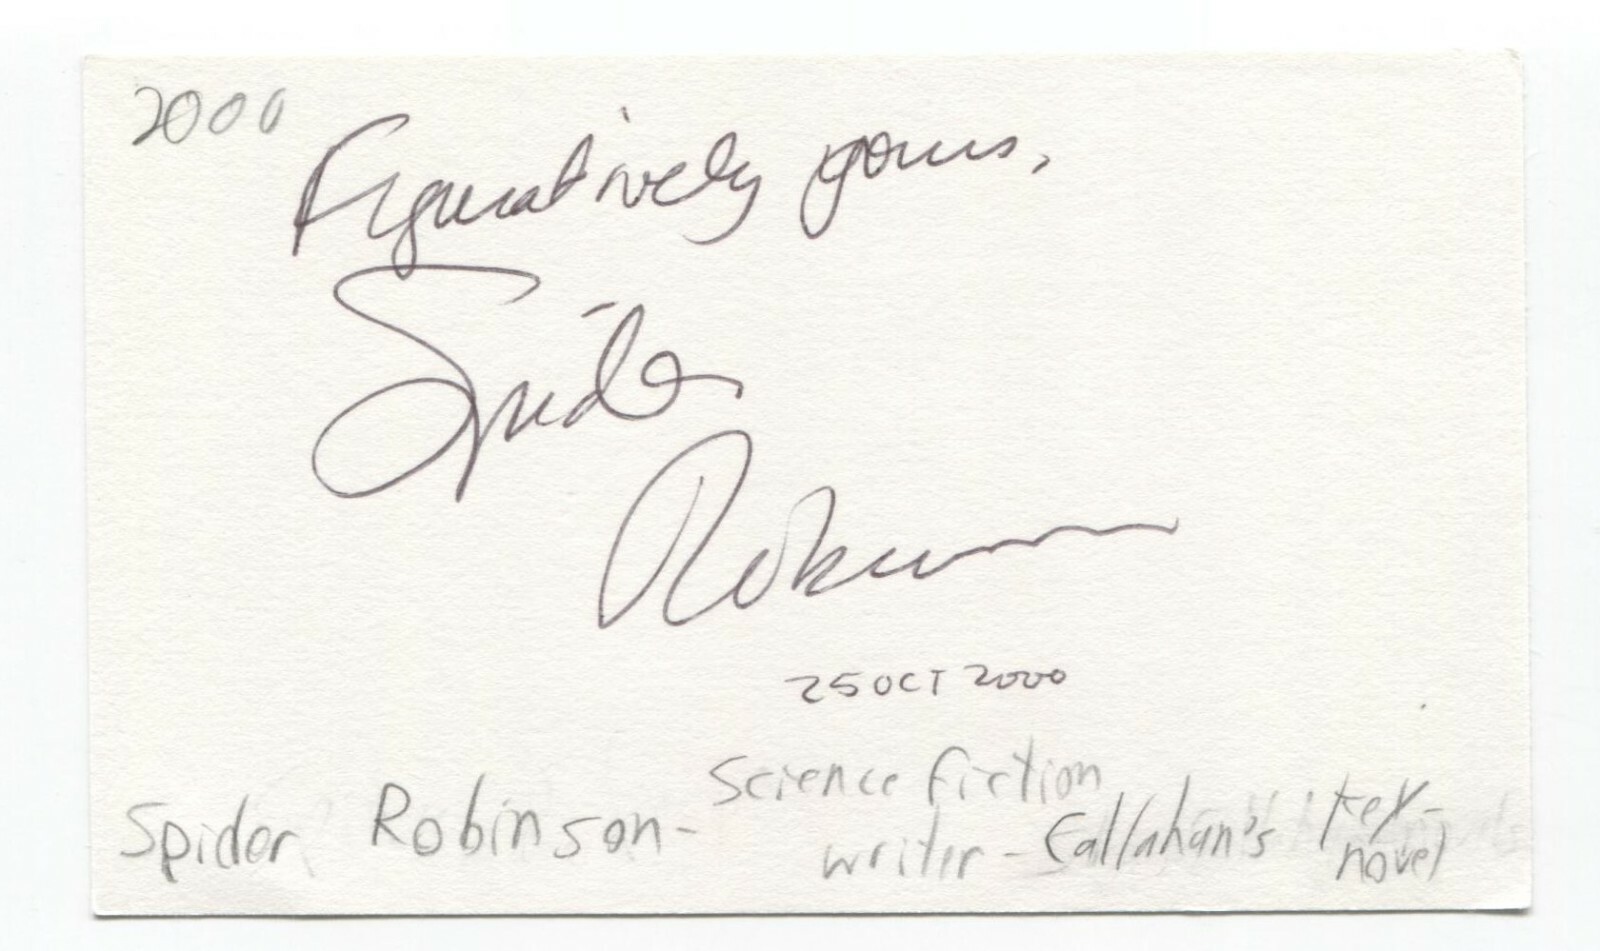 2000
Figuratively yours,
Spider
Robinson
25 OCT 2000
Spider Robinson - Science fiction
writer - Callahan's Key -
novel